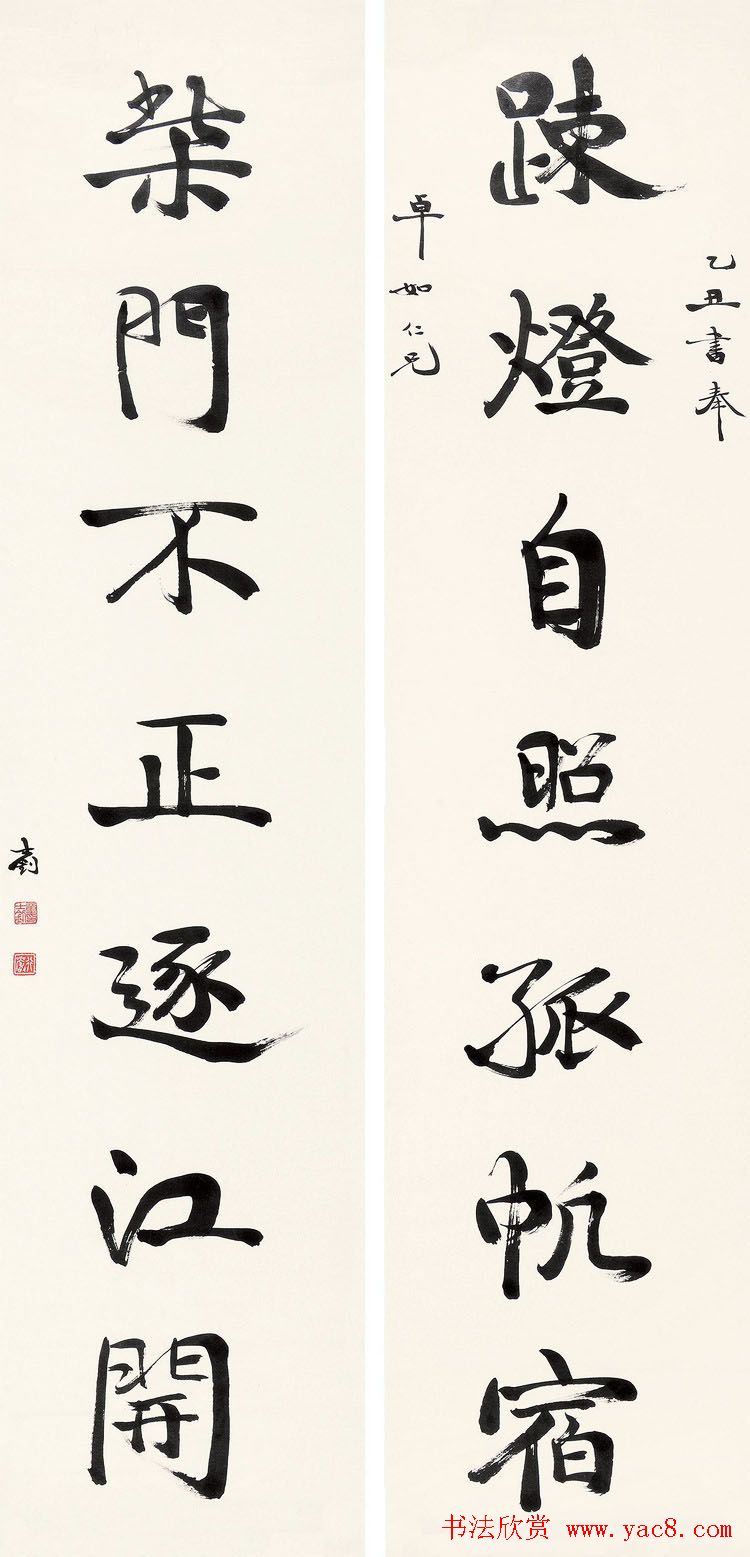 乙丑書奉
踈燈自照孤帆宿
卓如仁兄
柴門不正逐江開
士釗
书法欣赏 www.yac8.com